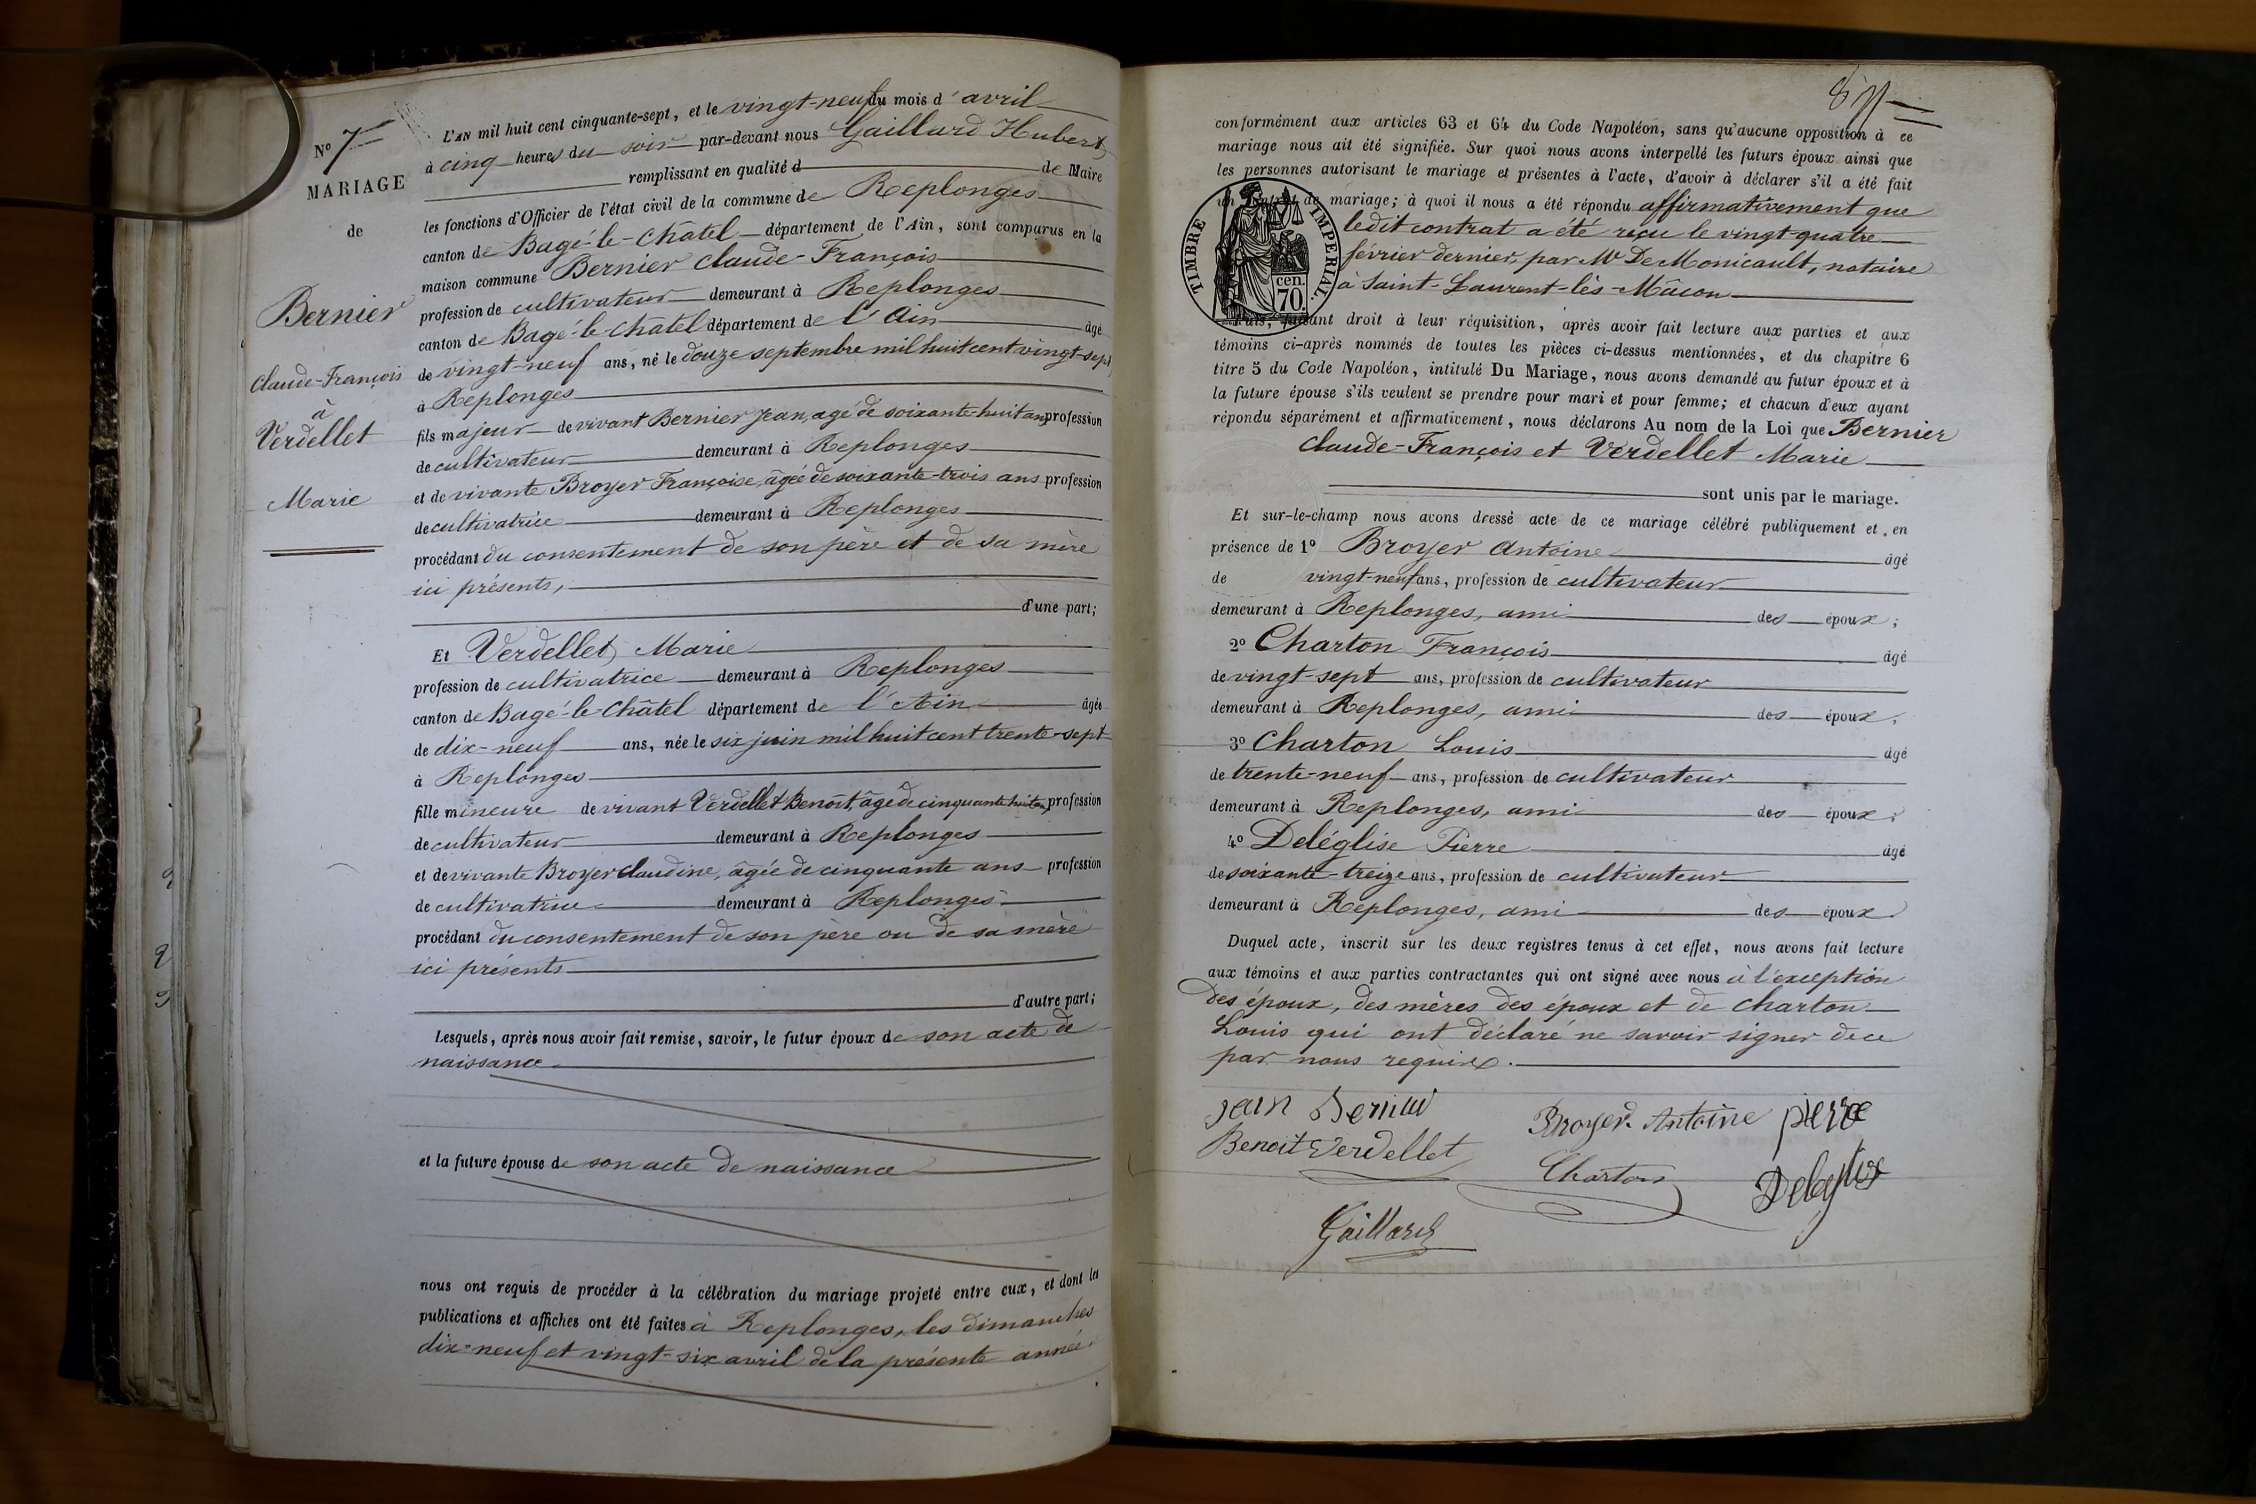 N° 7
MARIAGE
de
Bernier
Claude-François
à
Verdellet
Marie
L'AN mil huit cent cinquante-sept, et le vingt-neuf du mois d'avril
à cinq heures du soir par-devant nous Gaillard Hubert,
remplissant en qualité d de Maire
les fonctions d'Officier de l'état civil de la commune de Replonges
canton de Bagé-le-Châtel département de l'Ain, sont comparus en la
maison commune Bernier Claude-François
profession de cultivateur demeurant à Replonges
canton de Bagé-le-Châtel département de l'Ain âgé
de vingt-neuf ans, né le douze septembre mil huit cent vingt-sept,
à Replonges
fils majeur de vivant Bernier Jean, âgé de soixante-huit ans profession
de cultivateur demeurant à Replonges
et de vivante Broyer Françoise, âgée de soixante-trois ans profession
de cultivatrice demeurant à Replonges
procédant du consentement de son père et de sa mère
ici présents,
d'une part;
Et Verdellet, Marie
profession de cultivatrice demeurant à Replonges
canton de Bagé-le-Châtel département de l'Ain âgée
de dix-neuf ans, née le six juin mil huit cent trente-sept
à Replonges
fille mineure de vivant Verdellet Benoît, âgé de cinquante huit ans, profession
de cultivateur demeurant à Replonges
et de vivante Broyer Claudine, âgée de cinquante ans profession
de cultivatrice demeurant à Replonges
procédant du consentement de son père ou de sa mère
ici présents
d'autre part;
Lesquels, après nous avoir fait remise, savoir, le futur époux de son acte de
naissance
et la future épouse de son acte de naissance
nous ont requis de procéder à la célébration du mariage projeté entre eux, et dont les
publications et affiches ont été faites à Replonges, les dimanches
dix-neuf et vingt-six avril de la présente année
conformément aux articles 63 et 64 du Code Napoléon, sans qu'aucune opposition à ce
mariage nous ait été signifiée. Sur quoi nous avons interpellé les futurs époux ainsi que
les personnes autorisant le mariage et présentes à l'acte, d'avoir à déclarer s'il a été fait
un contrat de mariage; à quoi il nous a été répondu affirmativement que
ledit contrat a été reçu le vingt-quatre
février dernier, par Me De Monicault, notaire
à Saint-Laurent-lès-Mâcon
TIMBRE IMPERIAL.
cen.
70
Puis, faisant droit à leur réquisition, après avoir fait lecture aux parties et aux
témoins ci-après nommés de toutes les pièces ci-dessus mentionnées, et du chapitre 6
titre 5 du Code Napoléon, intitulé Du Mariage, nous avons demandé au futur époux et à
la future épouse s'ils veulent se prendre pour mari et pour femme; et chacun d'eux ayant
répondu séparément et affirmativement, nous déclarons Au nom de la Loi que Bernier
Claude-François et Verdellet Marie
sont unis par le mariage.
Et sur-le-champ nous avons dressé acte de ce mariage célébré publiquement et en
présence de 1° Broyer Antoine âgé
de vingt-neuf ans, profession de cultivateur
demeurant à Replonges, ami des époux;
2° Charton François âgé
de vingt-sept ans, profession de cultivateur
demeurant à Replonges, ami des époux;
3° Charton Louis âgé
de trente-neuf ans, profession de cultivateur
demeurant à Replonges, ami des époux;
4° Deléglise Pierre âgé
de soixante-treize ans, profession de cultivateur
demeurant à Replonges, ami des époux
Duquel acte, inscrit sur les deux registres tenus à cet effet, nous avons fait lecture
aux témoins et aux parties contractantes qui ont signé avec nous à l'exception
des époux, des mères des époux et de Charton
Louis qui ont déclaré ne savoir signer de ce
par nous requis.
Jean Bernier
Broyer Antoine pierre
Benoit Verdellet
Charton
Gaillard